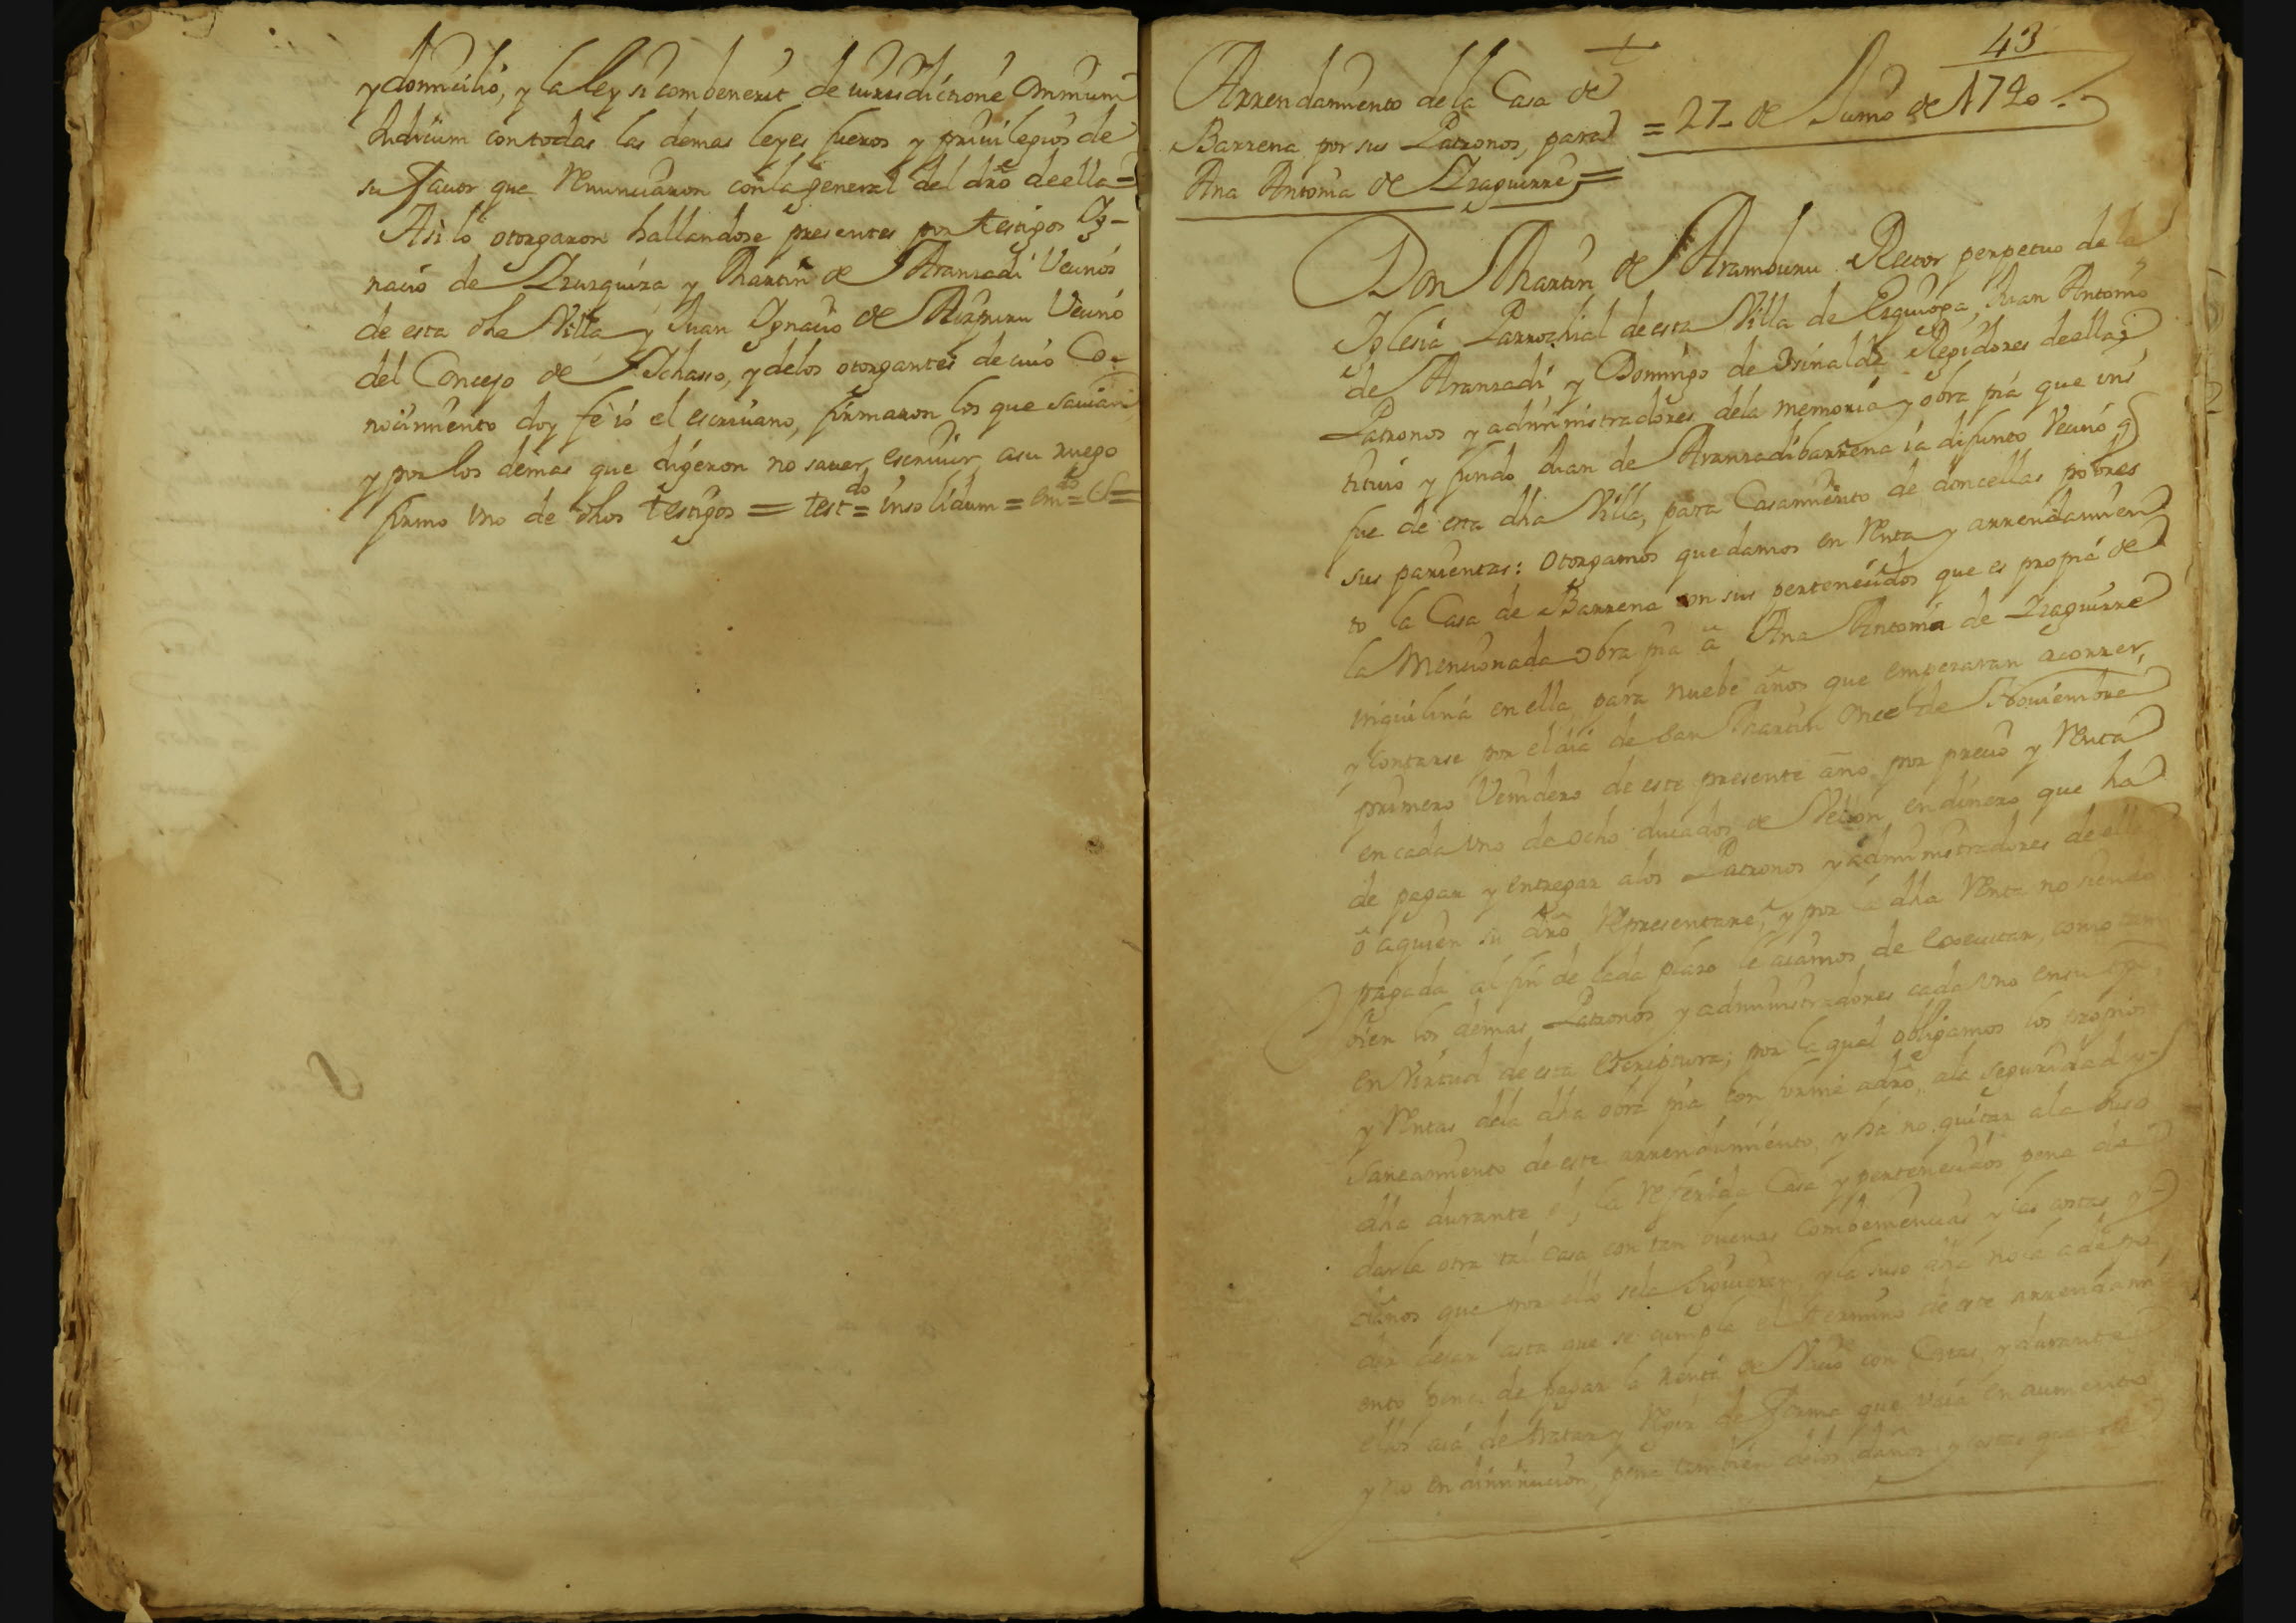 y domicilio, y la ley si combenerit de iurisdicione omnium
Iudicum con todas las demas leyes fueros y privilegios de
su favor que renunciaron con la general del dro de ella =
Asi lo otorgaron hallandose presentes por testigos Yg-
nacio de Yzurquiza y Martin de Aranzadi Vecinos
de esta dha Villa y Juan Ygnacio de Aizpuru Vecino
del Concejo de Ychasso, y de los otorgantes de cuio Co-
nocimiento doy fe io el escrivano, firmaron los que savian
y por los demas que digeron no saver escrivir asu ruego
firmo uno de dhos testigos = testdo = insolidum =
43
Arrendamiento de la Casa de
Barrena por sus Patronos, para
Ana Antonia de Yzaguirre =
= 27 - de Junio de 1740 . -
Don Martin de Aramburu Rector perpetuo de la
Iglesia Parrochial de esta Villa de Ezquioga, Juan Antonio
de Aranzadi y Domingo de Regidores de ella
Patronos y administradores dela memoria y obra pia que ins
tituio y fundo Juan de Aranzadibarrena ia difunto Vecino q
fue de esta dha Villa, para Casamiento de doncellas pobres
sus parientas: otorgamos que damos en renta y arrendamien
to la Casa de Barrena con sus pertenecidos que es propia de
la mencionada obra pia a Ana Antonia de Yzaguirre
inquilina en ella para nuebe años que empezaran acorrer,
y contarse por el dia de San Martin once de Noviembre
primero Venidero de este presente año por precio y renta
en cada uno de ocho ducados de Vellon en dinero que ha
de pagar y entregar alos Patronos y administradores de ella
o aquien su dro representare, y por la dha renta no siendo
pagada al fin de cada plazo le aiamos de executar, como tam
bien los demas Patronos y administradores cada uno en su
en virtud de esta escriptura; por la qual obligamos los propios
y rentas dela dha obra pia con adro, ala seguridad y
saneamiento de este arrendamiento, y ha no quitar ala suso
dha durante el, la referida Casa y pertenecidos pena de
darla otra tal casa con tan buenas combeniencias y las costas y
daños que por ello sela siguieren, y la suso dha no la ade po
der dejar asta que se cumpla el termino de este arrendami
ento pena de pagar la renta de vacio con Costas, y durante
ellos aia de tratar y regir de forma que vaia en aumento
y no en diminucion, pena tambien delos daños y costas que